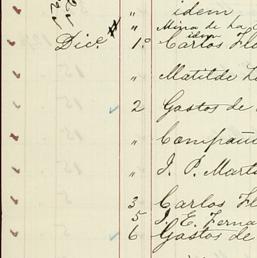 " idem
" Mina de La
idem
Dice # 1.º Carlos Flo
" Matilde L
2 Gastos de
" Compañ
" J. P. Mart
3 Carlos Fl
5 J. E. Ferna
6 Gastos de